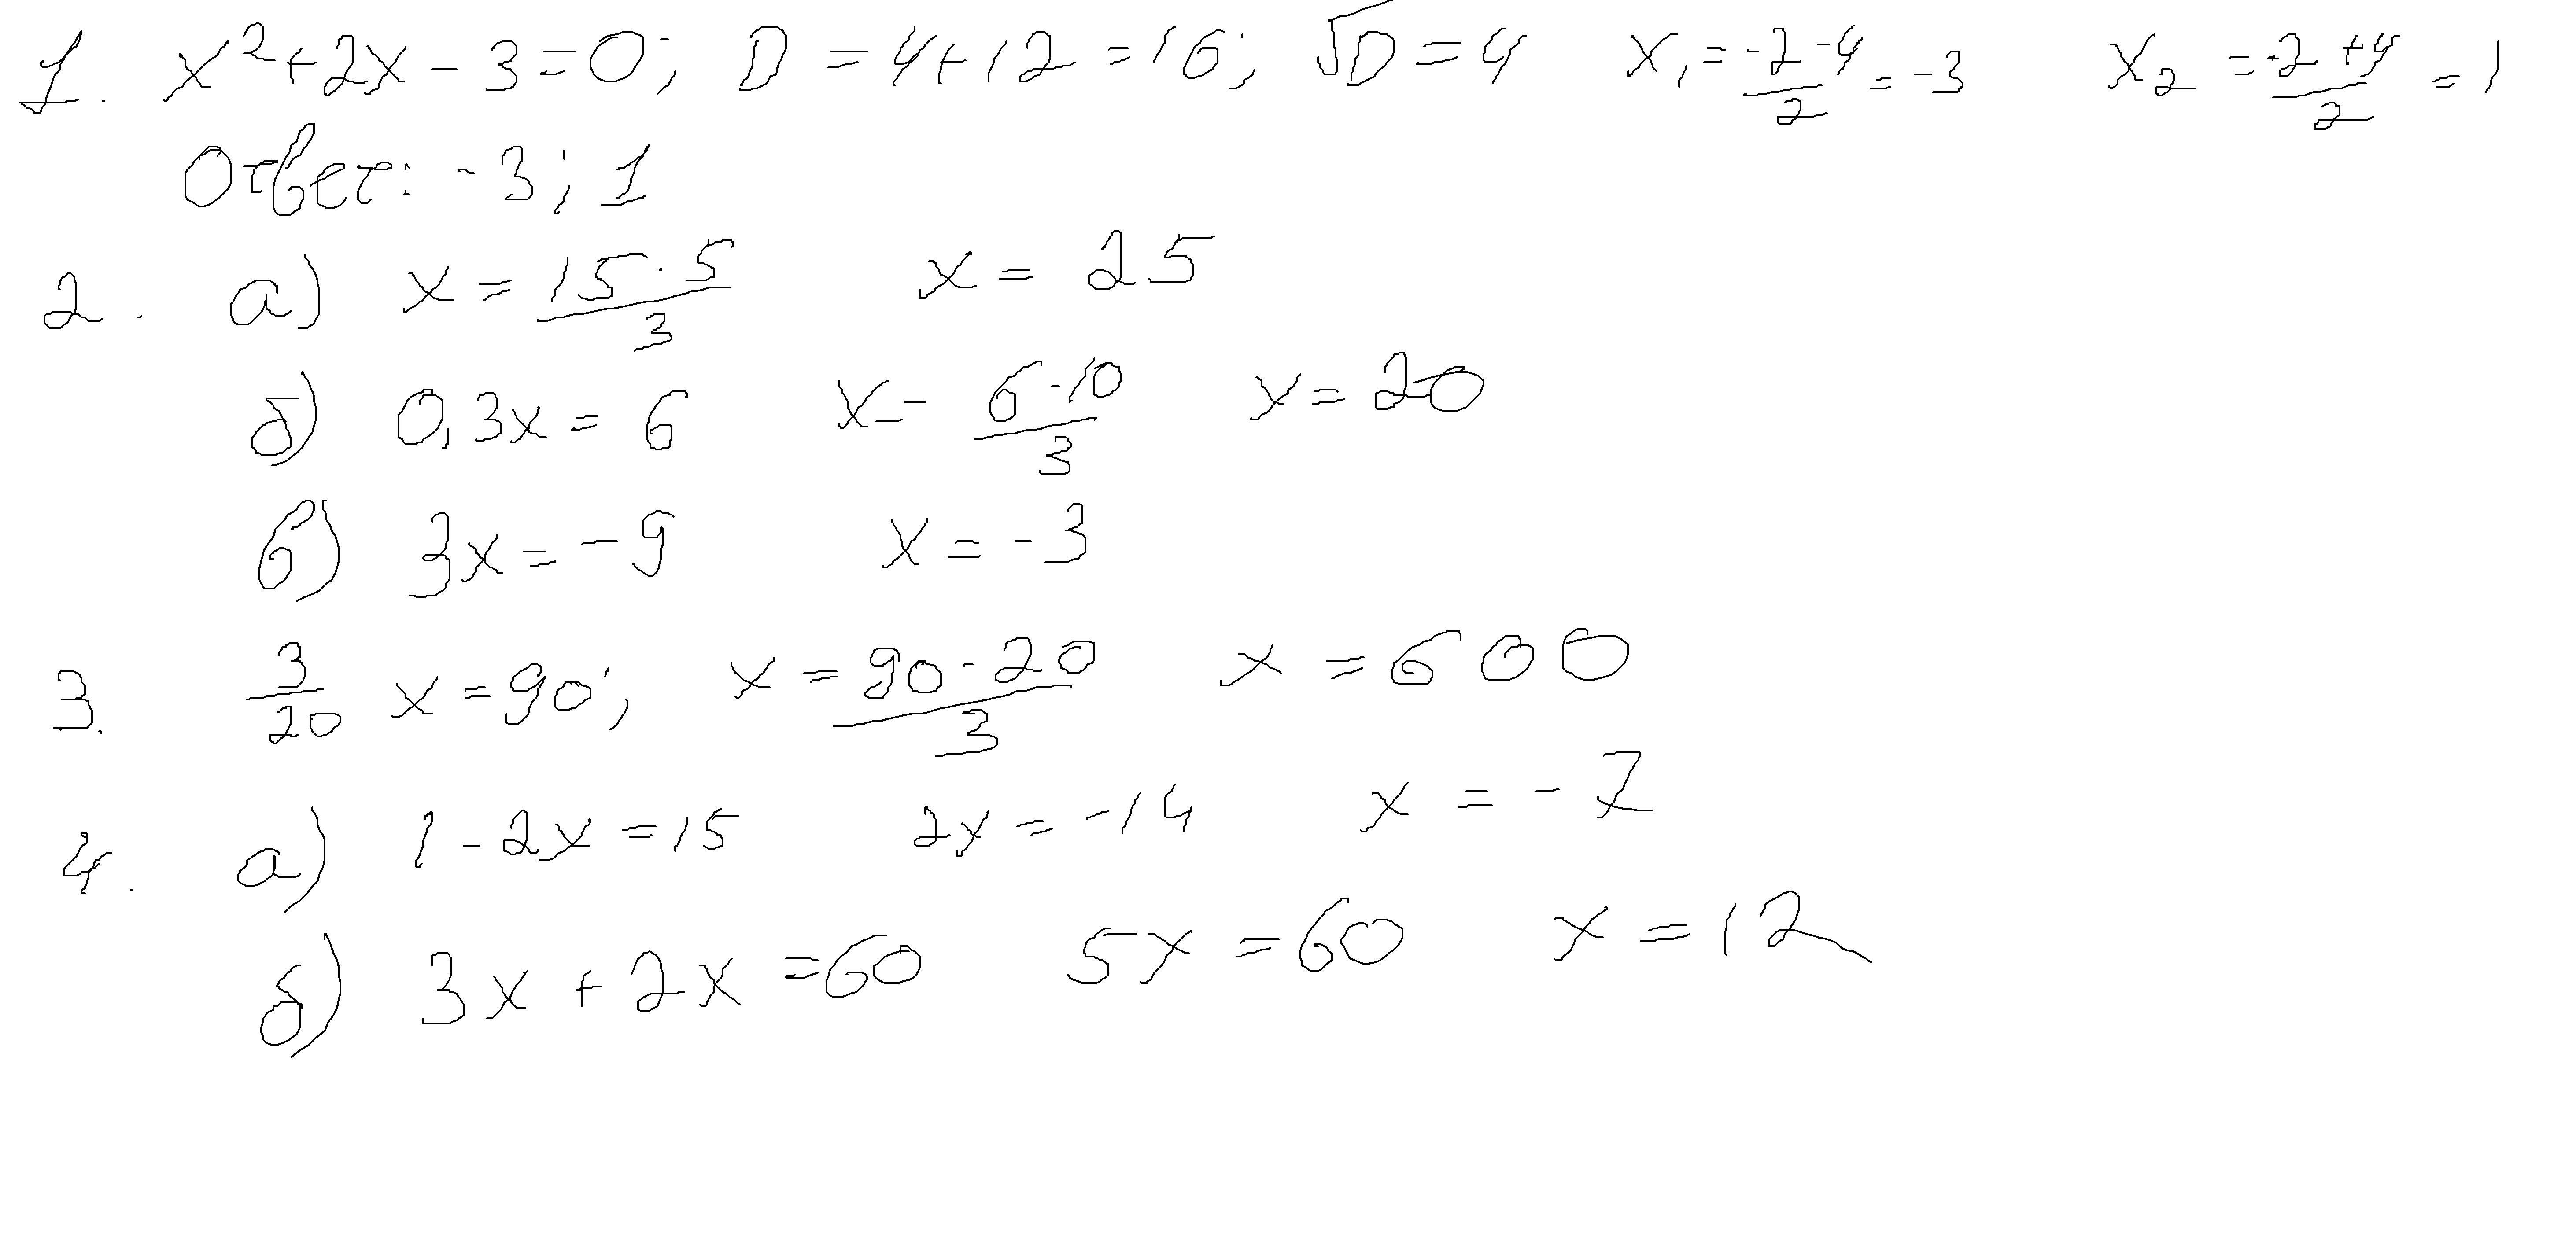 1. x²+2x-3=0; D=4+12=16; √D=4 x₁=(-2-4)/2=-3 x₂=(-2+4)/2=1
Ответ: -3; 1
2. а) x=(15·5)/3 x=25
б) 0,3x=6 x=(6·10)/3 x=20
в) 3x=-9 x=-3
3. 3/20 x=90; x=(90·20)/3 x=600
4. а) 1-2x=15 2x=-14 x=-7
б) 3x+2x=60 5x=60 x=12